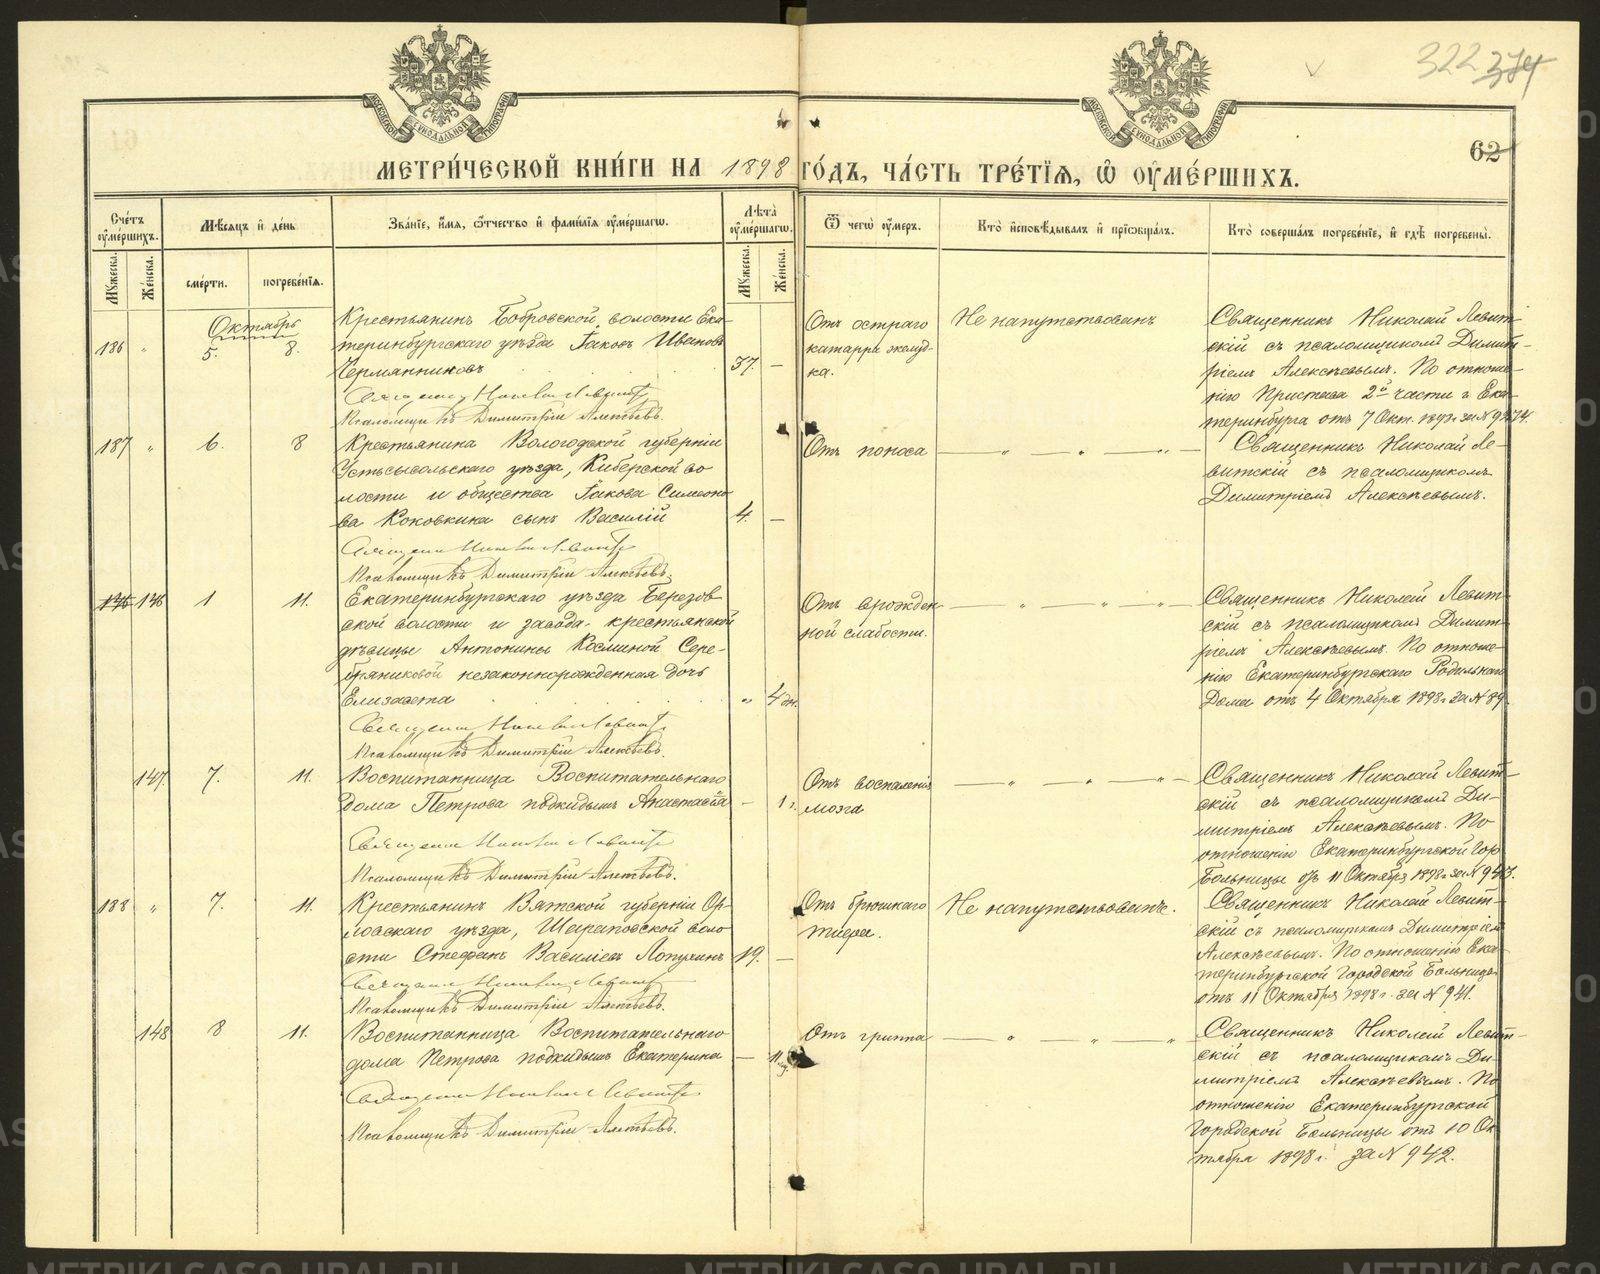 322 374
62
МЕТРИ́ЧЕСКОЙ КНИ́ГИ НА 1898 ГО́ДЪ, ЧА́СТЬ ТРЕ́ТІѦ, Ѡ ОУМЕ́РШИХЪ.
Сче́тъ оуме́ршихъ.
Мѣ́сяцъ и де́нь
Зва́ніе, и́мя, ѻ́тчество и фами́лія оуме́ршагѡ.
Лѣ́та оуме́ршагѡ.
Ѿ чегѡ̀ оу́меръ.
Кто̀ исповѣ́дывалъ и пріѡбща́лъ.
Кто̀ соверша́лъ погребе́ніе, и гдѣ̀ погребены̀.
Мужеска.
Же́нска.
сме́рти.
погребе́нія.
Мужеска.
Же́нска.
Октябрь
186 " 5. 8.
Крестьянинъ Бобровской волости Ека-
теринбургскаго уѣзда Іаковъ Ивановъ
Черманниновъ
37. —
Священникъ Николай Левитскій
Псаломщикъ Димитрій Алексѣевъ.
Отъ остраго
катарра желуд-
ка.
Не напутствованъ
Священникъ Николай Левит-
скій съ псаломщикомъ Димит-
ріемъ Алексѣевымъ. По отноше-
нію Пристава 2й части г. Ека-
теринбурга отъ 7 Окт. 1898 г. за № 9274.
187 " 6. 8
Крестьянина Вологодской губерніи
Устьсысольскаго уѣзда, Киберской во-
лости и общества Іакова Симеоно-
ва Коковкина сынъ Василій
4. —
Священникъ Николай Левитскій
Псаломщикъ Димитрій Алексѣевъ.
Отъ поноса
— " — " — " —
Священникъ Николай Ле-
витскій съ псаломщикомъ
Димитріемъ Алексѣевымъ.
146 146 1 11.
Екатеринбургскаго уѣзда Березов-
ской волости и завода, крестьянской
дѣвицы Антонины Косминой Сере-
бряниковой незаконнорожденная дочь
Елизавета
" 4 дн.
Священникъ Николай Левитскій
Псаломщикъ Димитрій Алексѣевъ.
Отъ врожден-
ной слабости.
— " — " — " —
Священникъ Николай Левит-
скій съ псаломщикомъ Димит-
ріемъ Алексѣевымъ. По отноше-
нію Екатеринбургскаго Родильнаго
Дома отъ 4 Октября 1898 г. за № 89
147. 7. 11.
Воспитанница Воспитательнаго
Дома Петрова подкидышъ Анастасія
— 1 г.
Священникъ Николай Левитскій
Псаломщикъ Димитрій Алексѣевъ.
Отъ воспаленія
мозга
— " — " — " —
Священникъ Николай Левит-
скій съ псаломщикомъ Ди-
митріемъ Алексѣевымъ. По
отношенію Екатеринбургской Гор.
Больницы отъ 11 Октября 1898 г. за №
188 " 7. 11.
Крестьянинъ Вятской губерніи Ор-
ловскаго уѣзда, Шараповской воло-
сти Стефанъ Василіевъ Лопухинъ
19. —
Священникъ Николай Левитскій
Псаломщикъ Димитрій Алексѣевъ.
Отъ брюшнаго
тифа.
Не напутствованъ.
Священникъ Николай Левит-
скій съ псаломщикомъ Димитріемъ
Алексѣевымъ. По отношенію Ека-
теринбургской Городской Больницы
отъ 11 Октября 1898 г. за № 941.
148 8 11.
Воспитанница Воспитательнаго
дома Петрова подкидышъ Екатерина
— 11
Священникъ Николай Левитскій
Псаломщикъ Димитрій Алексѣевъ.
Отъ гриппа
— " — " — " —
Священникъ Николай Левит-
скій съ псаломщикомъ Ди-
митріемъ Алексѣевымъ. По
отношенію Екатеринбургской
Городской Больницы отъ 10 Ок-
тября 1898 г. за № 942.